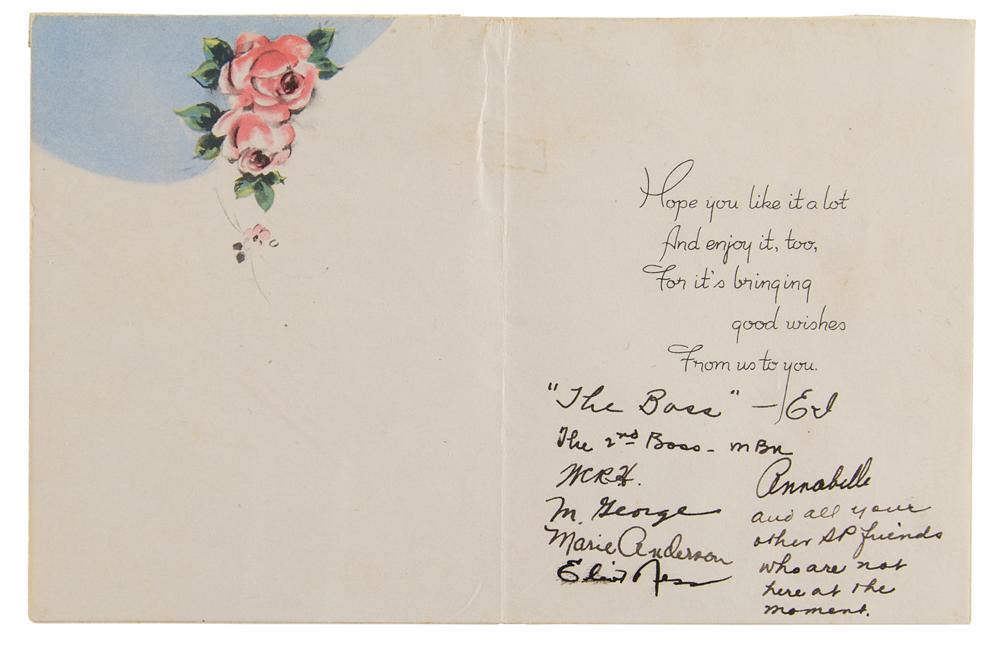 Hope you like it a lot
And enjoy it, too,
For it's bringing
good wishes
From us to you.
"The Boss" –
The 2nd Boss – MBR
W.R.H.
M. George
Marie Anderson
Eliot Ness
Annabelle
and all your
other SP friends
who are not
here at the
moment.